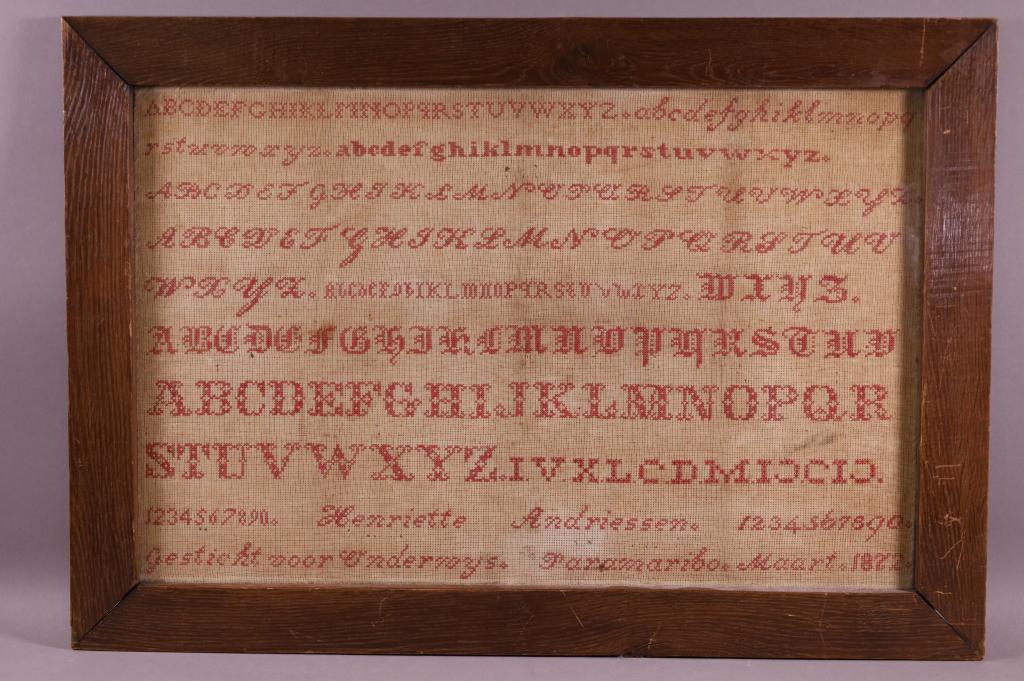 ABCDEFGHIKLMNOPQRSTUVWXYZ. abcdefghiklmnopq
rstuvwxyz. abcdefghiklmnopqrstuvwxyz.
ABCDEFGHIKLMNOPQRSTUVWXYZ.
ABCDEFGHIKLMNOPQRSTUV
WXYZ. ABCDEFGHIKLMNOPQRSTUVWXYZ. WXYZ.
ABCDEFGHIKLMNOPQRSTUV
ABCDEFGHIJKLMNOPQR
STUVWXYZ. IVXLCDMIƆCIƆ.
1234567890. Henriette Andriessen. 1234567890.
Gesticht voor Onderwys. Paramaribo. Maart. 1872.